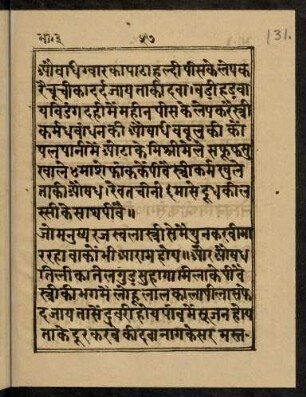 भा॰३ ५७ 131.
औषधि ग्वार का पाठा हल्दी पीस के लेप क
रै चूची का दर्द जाय ता की दवा। बड़ी हड़ वा
य विडंग दही में महीन पीस के लेप करै स्त्री
धन की औषधि बबूल की को
पल पानी में औटा के मिश्री मेले
खा ले ४ माशे फांक के पीवै स्त्री कर्म खुले
ता की औषध। रेवतचीनी १ मासे दूध की ल
स्सी के साथ पीवै॥
जो मनुष्य रजस्वला स्त्री से मैथुन कर बीमा
र रहा वा को भी आराम होय॥ और औषध
तिली का तेल गुड़ सुहागा मिला के पीवे
स्त्री की भग में लोहू लाल काला पीला सफे
द जाय तासें दुबरी होय पांव में सूजन होय
ता के दूर करबे की दवा नागकेसर मस्त-